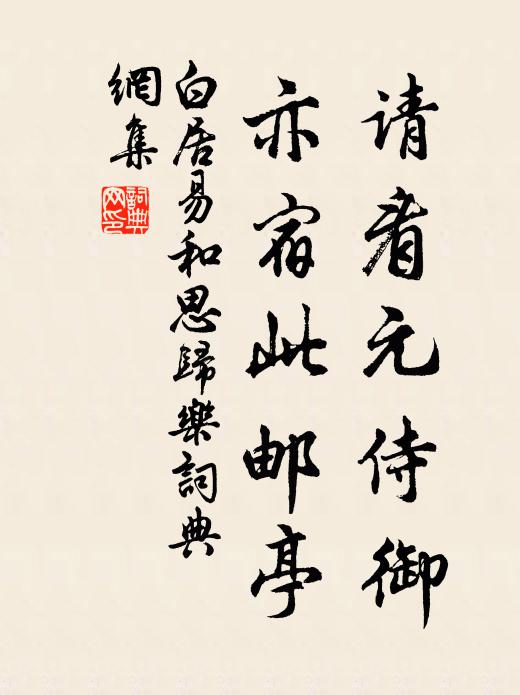 请看元侍御
亦宿此邮亭
白居易和思歸樂詞典
網集
詞典網印